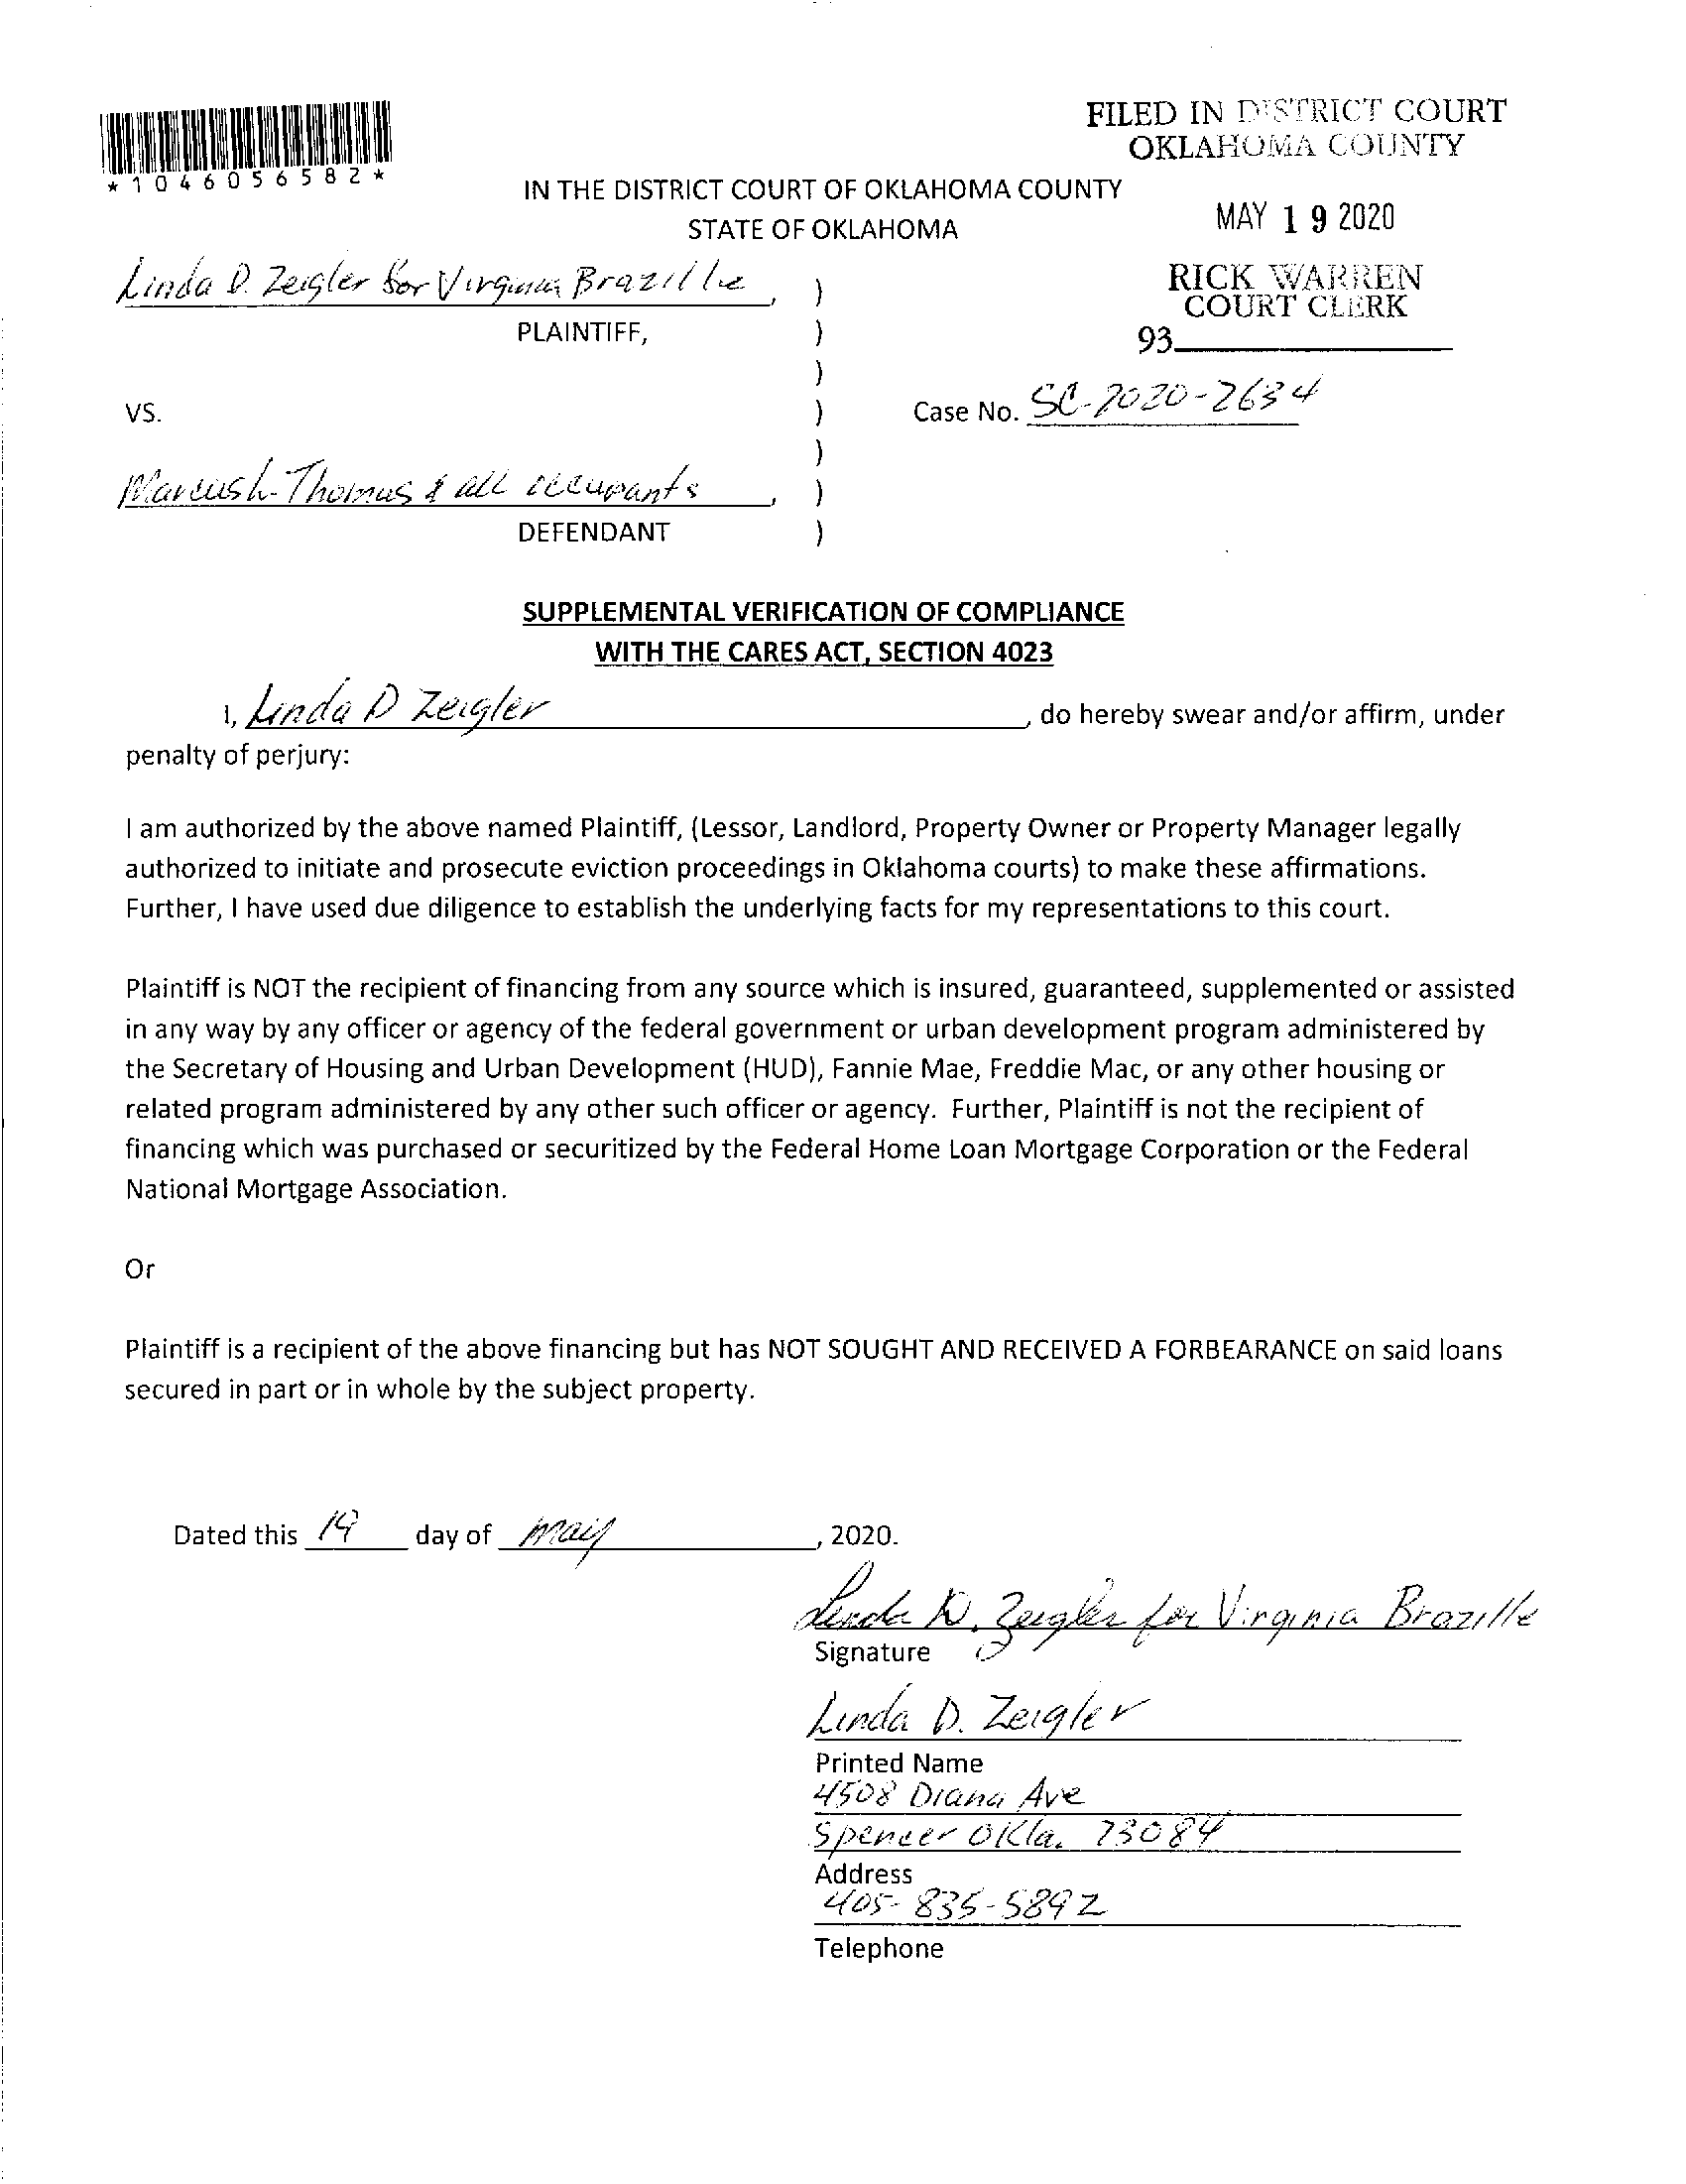 FILED IN DISTRICT COURT
OKLAHOMA COUNTY
*1046056582*
IN THE DISTRICT COURT OF OKLAHOMA COUNTY
STATE OF OKLAHOMA
MAY 19 2020
Linda D. Zeigler for Virginia Brazille, )
RICK WARREN
COURT CLERK
PLAINTIFF, )
93
)
VS. )
Case No. SC-2020-2634
)
Thomas & all occupants, )
DEFENDANT )
SUPPLEMENTAL VERIFICATION OF COMPLIANCE
WITH THE CARES ACT, SECTION 4023
I, Linda D Zeigler, do hereby swear and/or affirm, under
penalty of perjury:
I am authorized by the above named Plaintiff, (Lessor, Landlord, Property Owner or Property Manager legally
authorized to initiate and prosecute eviction proceedings in Oklahoma courts) to make these affirmations.
Further, I have used due diligence to establish the underlying facts for my representations to this court.
Plaintiff is NOT the recipient of financing from any source which is insured, guaranteed, supplemented or assisted
in any way by any officer or agency of the federal government or urban development program administered by
the Secretary of Housing and Urban Development (HUD), Fannie Mae, Freddie Mac, or any other housing or
related program administered by any other such officer or agency. Further, Plaintiff is not the recipient of
financing which was purchased or securitized by the Federal Home Loan Mortgage Corporation or the Federal
National Mortgage Association.
Or
Plaintiff is a recipient of the above financing but has NOT SOUGHT AND RECEIVED A FORBEARANCE on said loans
secured in part or in whole by the subject property.
Dated this 19 day of may, 2020.
Linda D. Zeigler for Virginia Brazille
Signature
Linda D. Zeigler
Printed Name
4508 Diana Ave
Spencer Okla. 73084
Address
405-835-5892
Telephone